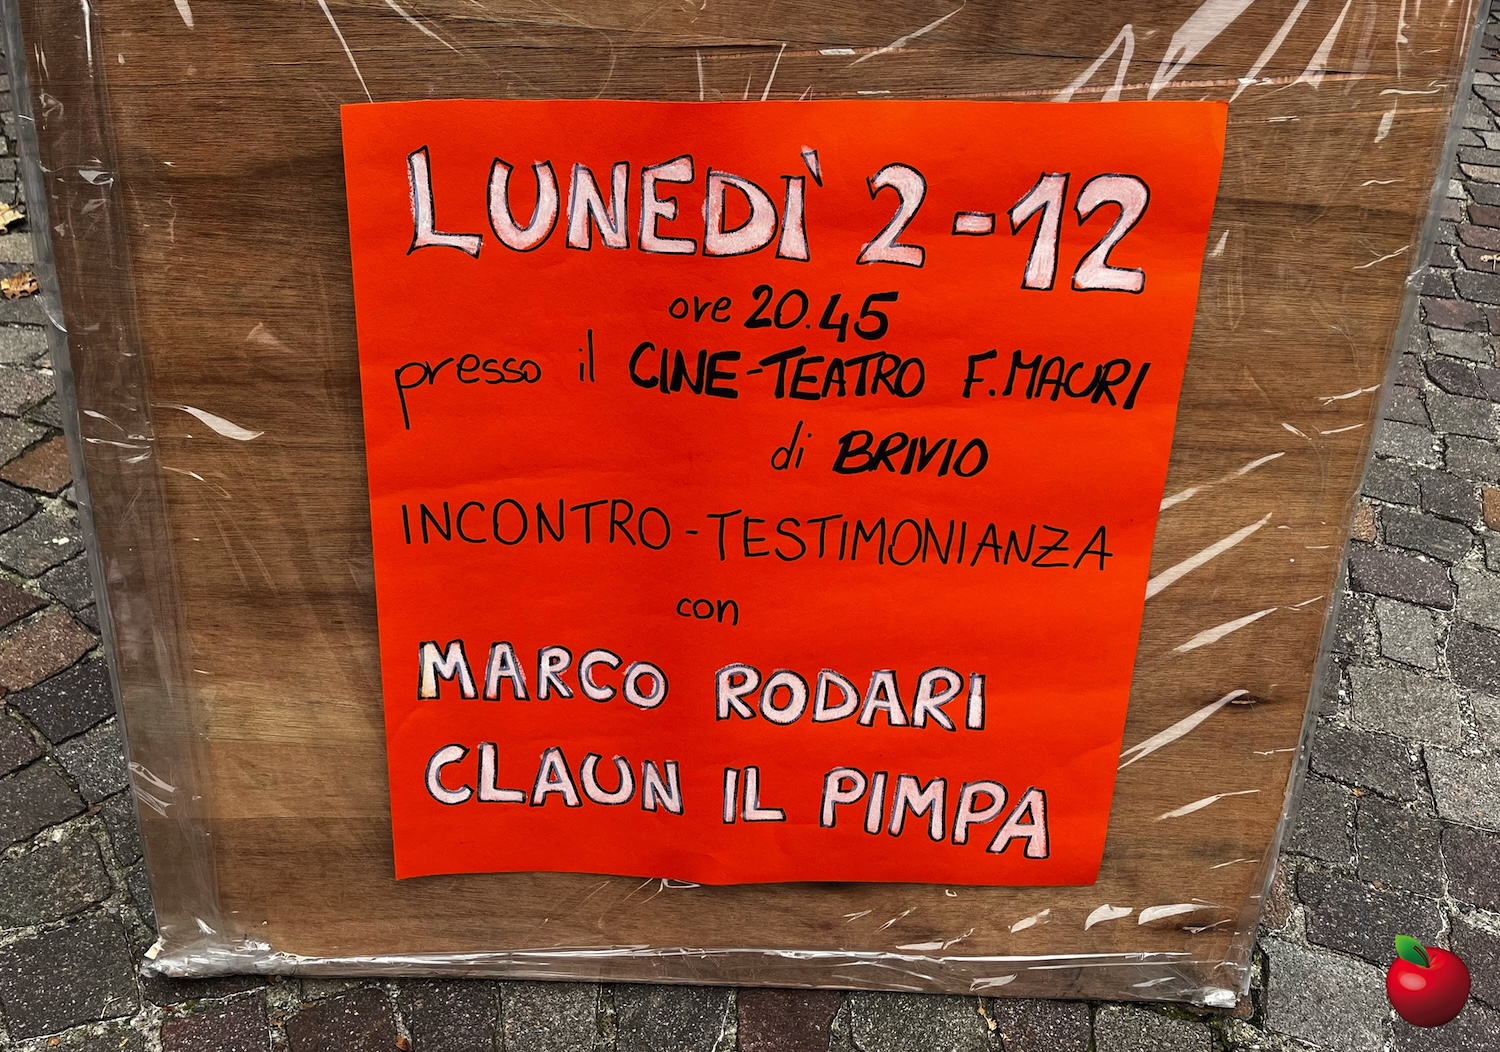 LUNEDÌ 2-12
ore 20.45
presso il CINE-TEATRO F. MAURI
di BRIVIO
INCONTRO-TESTIMONIANZA
con
MARCO RODARI
CLAUN IL PIMPA